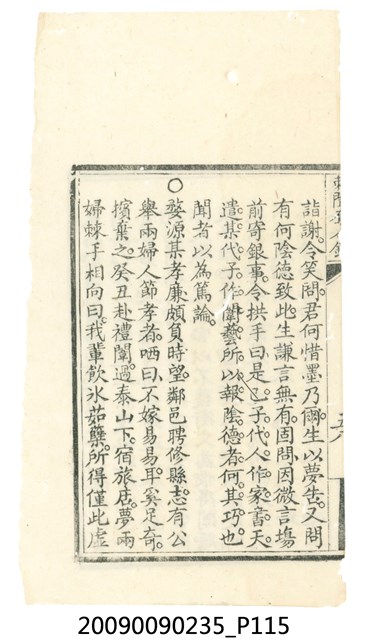 詣謝。令笑問。君何惜墨乃爾。生以夢告。又問
有何陰德致此。生謙言無有。固問。因微言塲
前寄銀事。令拱手曰。是已。子代人作家書。天
遣某代子作闈藝。所以報陰德者。何其巧也。
聞者以為篤論。
○
婺源某孝廉。頗負時望。鄰邑聘修縣志。有公
舉兩婦人節孝者。哂曰。不嫁易易耳。奚足奇。
擯棄之。癸丑赴禮闈。過泰山下。宿旅店。夢兩
婦棘手相向曰。我輩飲氷茹蘗。所得僅此虛
20090090235_P115